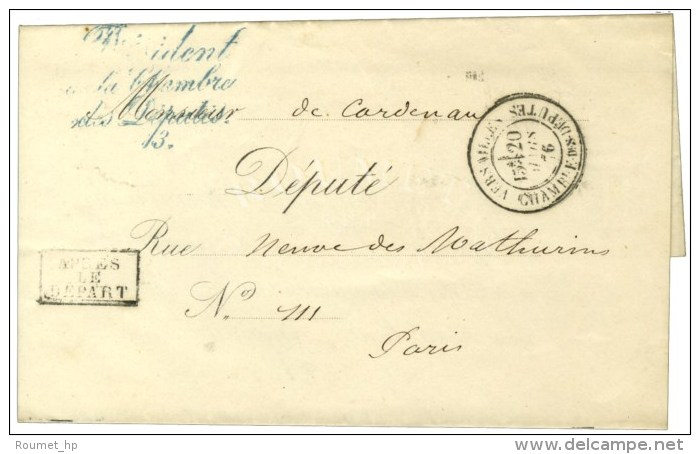 Président
de la Chambre
des Députés.
13.
Monsieur de Cardenau
Député
Rue Neuve des Mathurins
N.º 111
Paris
VERSAILLES CHAMBRE-DES-DEPUTES
20
MARS
76
APRES
LE
DEPART
Roumet_hp
www.delcampe.net